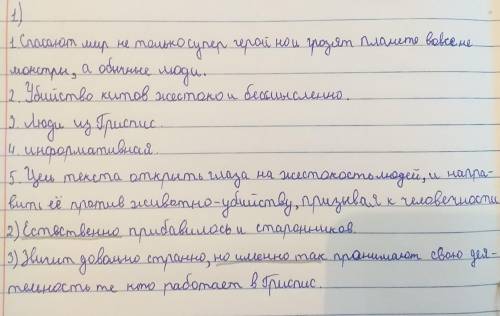 1)
1. Спасают мир не только супер герой но и грозят планете вовсе не
монстры, а обычные люди.
2. Убийство китов жестоко и бессмысленно.
3. Люди из Гриспис.
4. информативная.
5. Цель текста открыть глаза на жестокость людей, и напра-
вить её против животно-убийству, призывая к человечности
2) Сствственно прибавилось и сторонников.
3) Звучит довольно странно, но именно так пранимают свою дея-
тельность те кто работает в Гриспис.